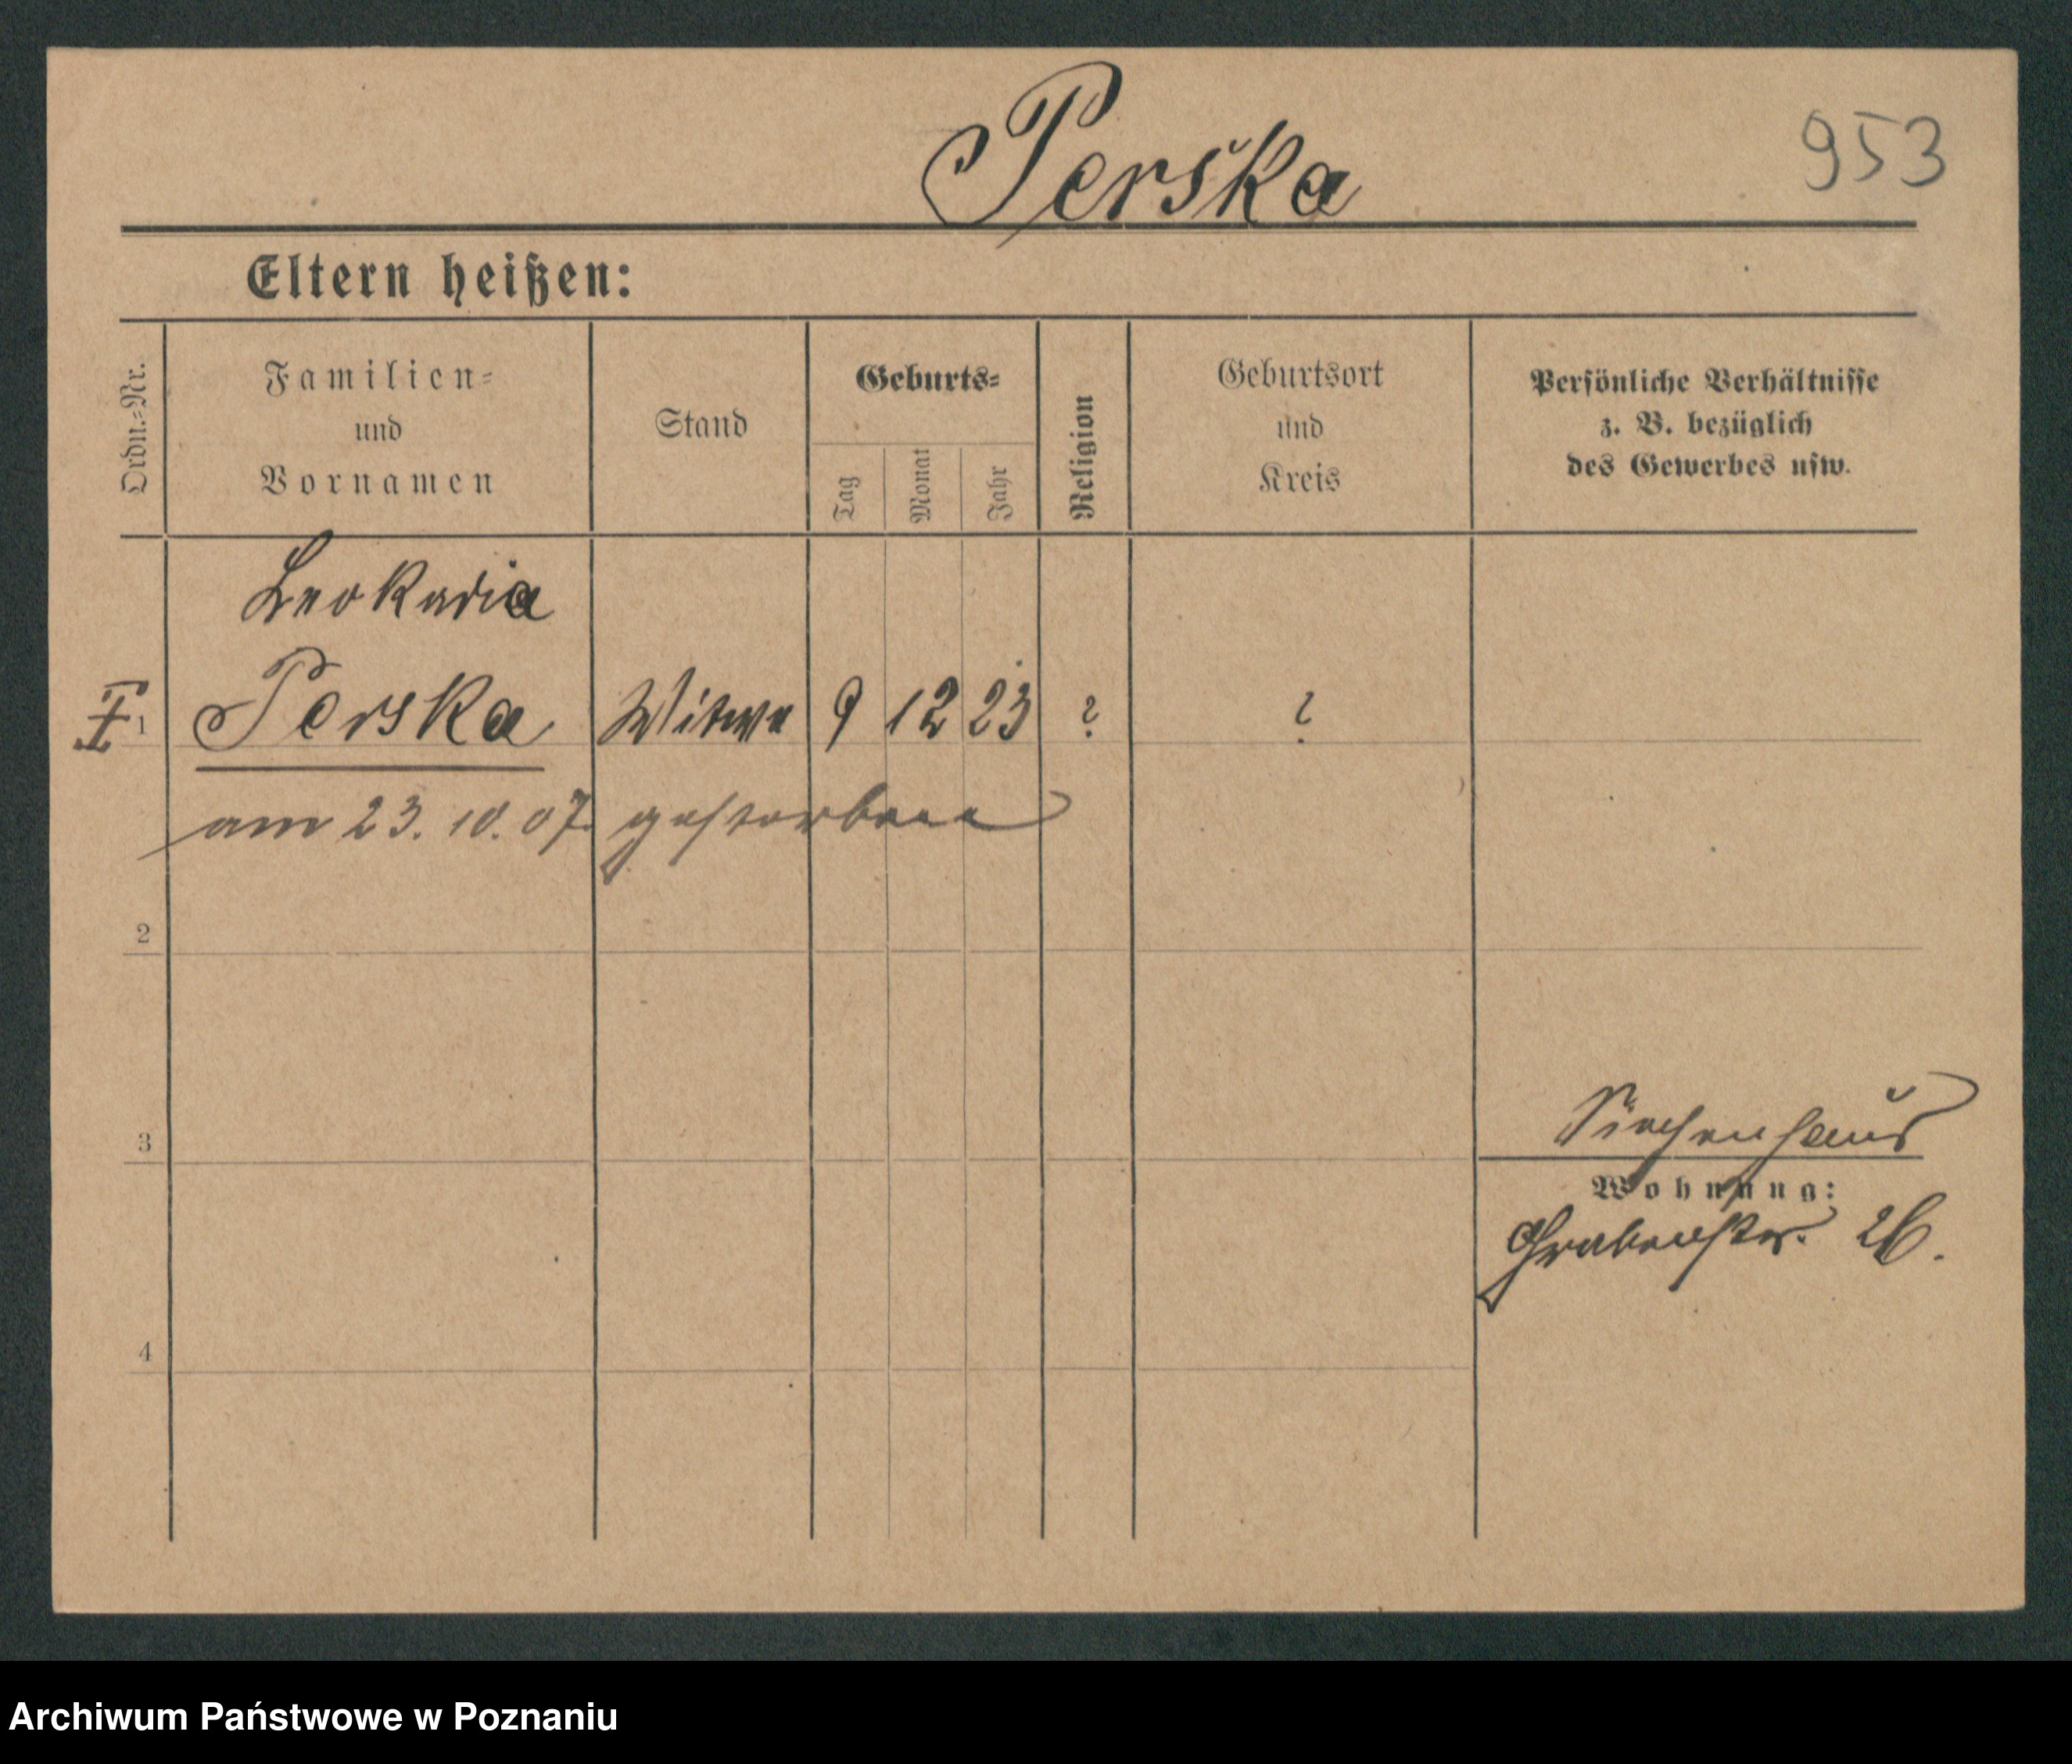 Perska
953
Eltern heißen:
Ordn.=Nr.
Familien=
und
Vornamen
Stand
Geburts=
Tag
Monat
Jahr
Religion
Geburtsort
und
Kreis
Persönliche Verhältnisse
z. B. bezüglich
des Gewerbes usw.
Leokadia
1 Perska Witwe 9 12 23 ? ?
am 23. 10. 07. gestorben
2
3
Siechenhaus
Wohnung:
Grabenstr. 26.
4
Archiwum Państwowe w Poznaniu